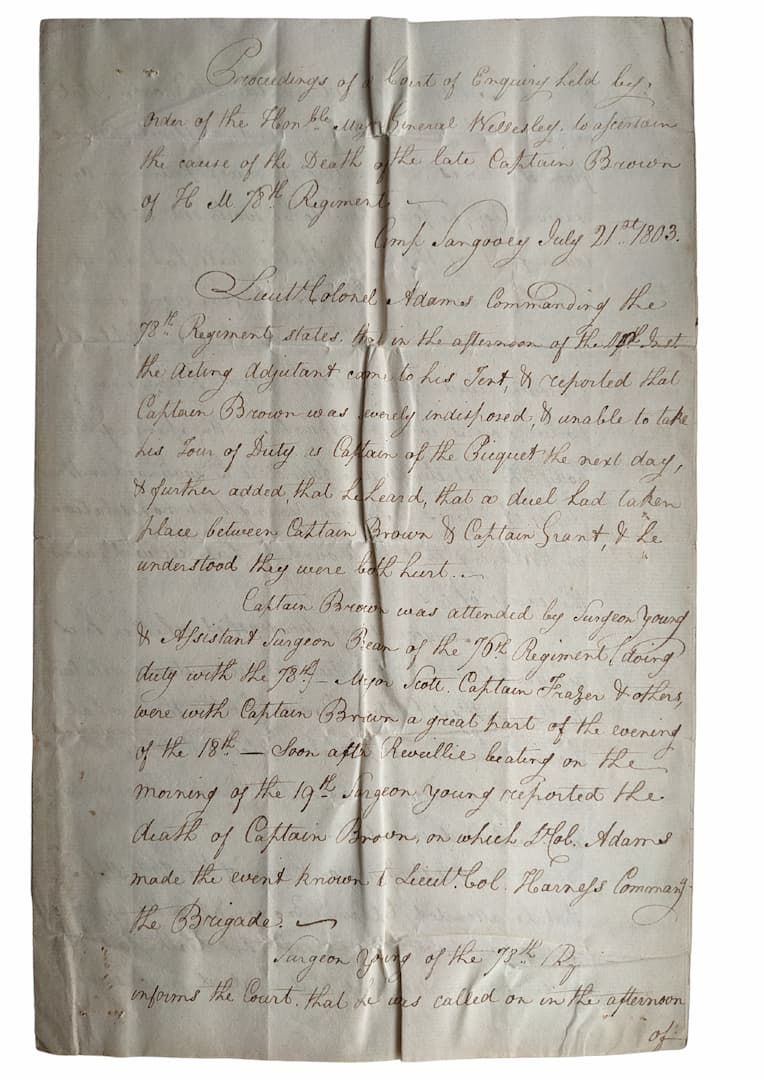 Proceedings of a Court of Enquiry held by
Order of the Honble. Maj. General Wellesley. to ascertain
the cause of the Death of the late Captain Brown
of H M 78th Regiment —
Camp Sangooey July 21st. 1803.
Lieut. Colonel Adams Commanding the
78th Regiment states. that in the afternoon of the Inst.
the Acting Adjutant came to his Tent, & reported that
Captain Brown was severely indisposed, & unable to take
his Tour of Duty as Captain of the Picquet the next day,
& further added, that he heard, that a duel had taken
place between Captain Brown & Captain Grant, & "he
understood they were both hurt. —
Captain Brown was attended by Surgeon Young
& Assistant Surgeon Bean of the 76th Regiment (doing
duty with the 78th) — Major Scott. Captain Frazer & others,
were with Captain Brown a great part of the evening
of the 18th — Soon after Reveillie beating on the
morning of the 19th. Surgeon Young reported the
death of Captain Brown, on which Lt Col. Adams
made the event known to Lieut. Col. Harness Commang.
the Brigade. —
Surgeon Young of the 78th Rg
informs the Court. that he was called on in the afternoon
of